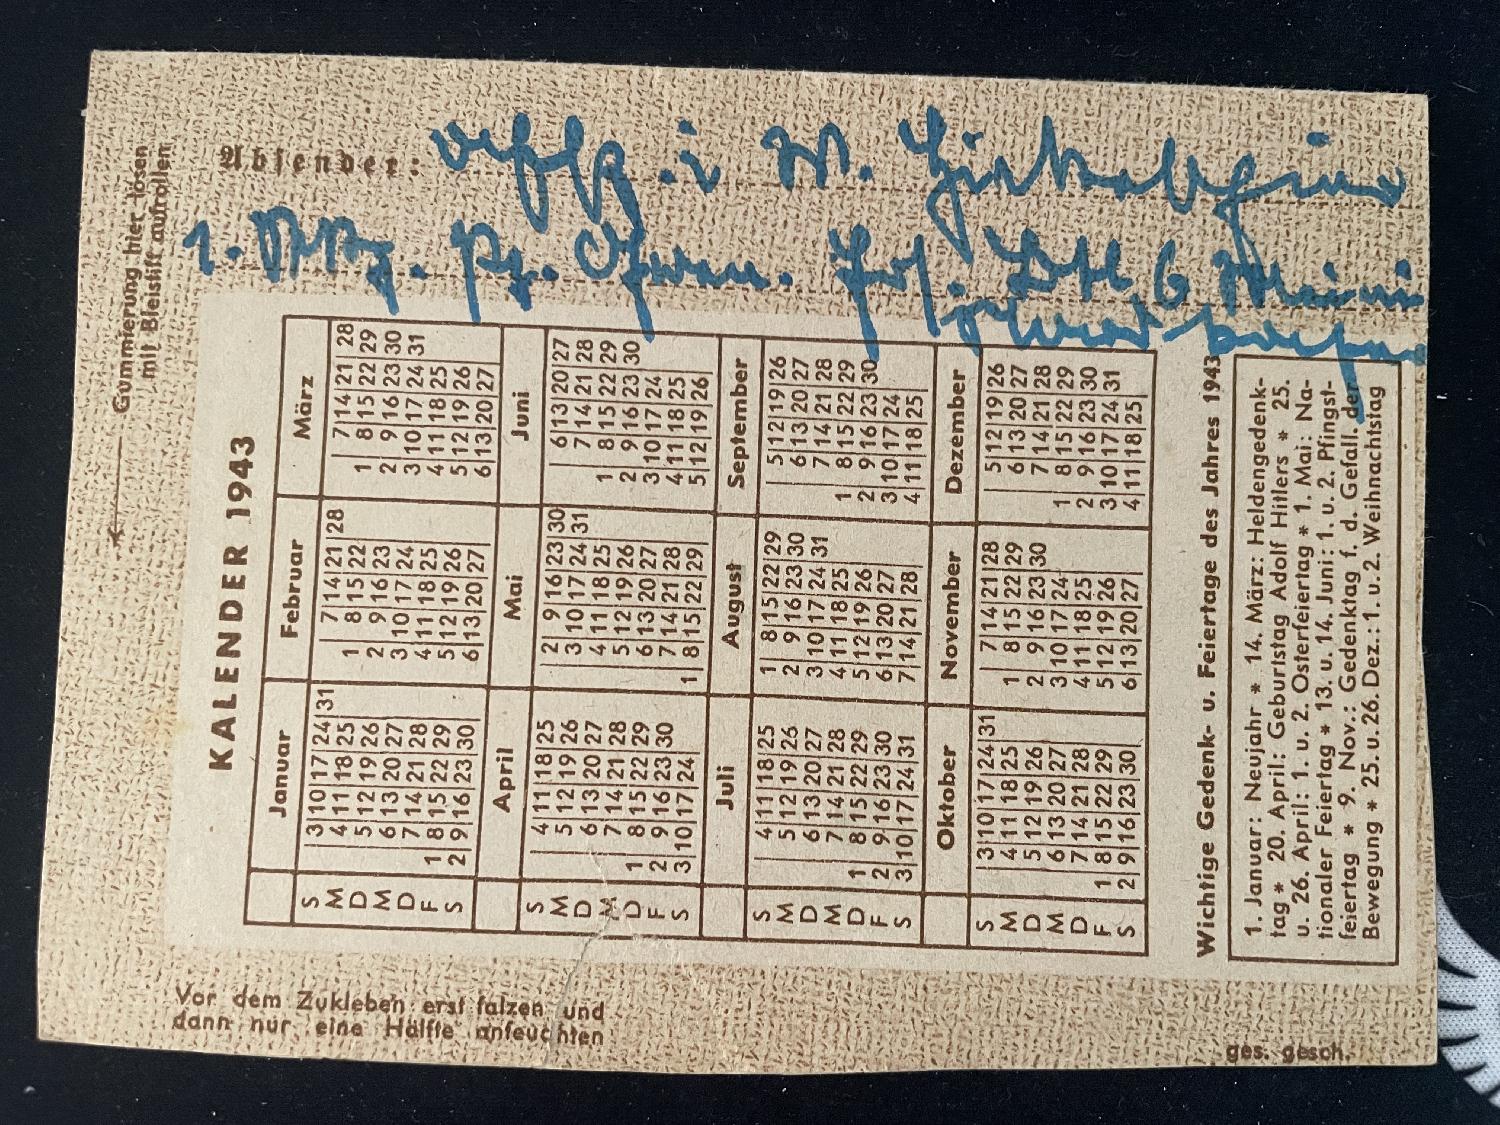 Absender:
1.
Gummierung hier lösen
mit Bleistift aufrollen
KALENDER 1943
Januar Februar März
S 3 10 17 24 31 7 14 21 28 7 14 21 28
M 4 11 18 25 1 8 15 22 1 8 15 22 29
D 5 12 19 26 2 9 16 23 2 9 16 23 30
M 6 13 20 27 3 10 17 24 3 10 17 24 31
D 7 14 21 28 4 11 18 25 4 11 18 25
F 1 8 15 22 29 5 12 19 26 5 12 19 26
S 2 9 16 23 30 6 13 20 27 6 13 20 27
April Mai Juni
S 4 11 18 25 2 9 16 23 30 6 13 20 27
M 5 12 19 26 3 10 17 24 31 7 14 21 28
D 6 13 20 27 4 11 18 25 1 8 15 22 29
M 7 14 21 28 5 12 19 26 2 9 16 23 30
D 1 8 15 22 29 6 13 20 27 3 10 17 24
F 2 9 16 23 30 7 14 21 28 4 11 18 25
S 3 10 17 24 1 8 15 22 29 5 12 19 26
Juli August September
S 4 11 18 25 1 8 15 22 29 5 12 19 26
M 5 12 19 26 2 9 16 23 30 6 13 20 27
D 6 13 20 27 3 10 17 24 31 7 14 21 28
M 7 14 21 28 4 11 18 25 1 8 15 22 29
D 1 8 15 22 29 5 12 19 26 2 9 16 23 30
F 2 9 16 23 30 6 13 20 27 3 10 17 24
S 3 10 17 24 31 7 14 21 28 4 11 18 25
Oktober November Dezember
S 3 10 17 24 31 7 14 21 28 5 12 19 26
M 4 11 18 25 1 8 15 22 29 6 13 20 27
D 5 12 19 26 2 9 16 23 30 7 14 21 28
M 6 13 20 27 3 10 17 24 1 8 15 22 29
D 7 14 21 28 4 11 18 25 2 9 16 23 30
F 1 8 15 22 29 5 12 19 26 3 10 17 24 31
S 2 9 16 23 30 6 13 20 27 4 11 18 25
Wichtige Gedenk- u. Feiertage des Jahres 1943
1. Januar: Neujahr * 14. März: Heldengedenk-
tag * 20. April: Geburtstag Adolf Hitlers * 25.
u. 26. April: 1. u. 2. Osterfeiertag * 1. Mai: Na-
tionaler Feiertag * 13. u. 14. Juni: 1. u. 2. Pfingst-
feiertag * 9. Nov.: Gedenktag f. d. Gefall. der
Bewegung * 25. u. 26. Dez.: 1. u. 2. Weihnachtstag
Vor dem Zukleben erst falzen und
dann nur eine Hälfte anfeuchten
ges. gesch.